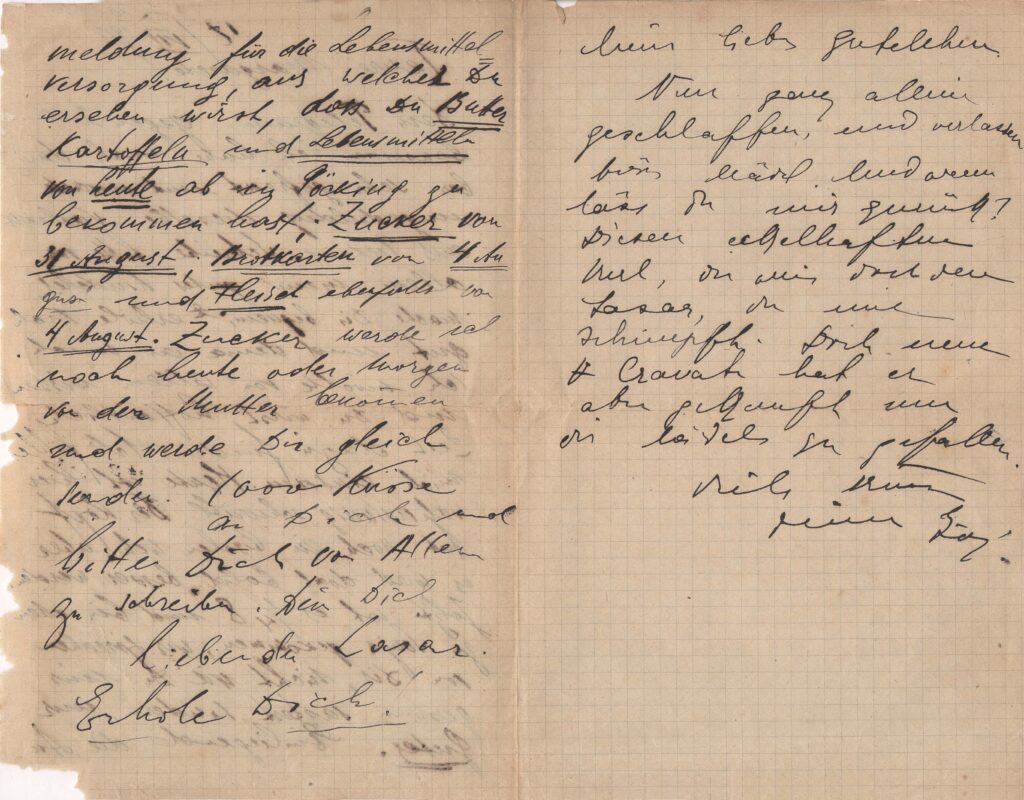 meldung für die Lebensmittel
versorgung, aus welcher Du
ersehen wirst, dass Du Butter
Kartoffeln und Lebensmitteln
von heute ab in Pöcking zu
bekommen hast. Zucker von
31 August, Brotkarten von 4 Au
gust und Fleisch ebenfalls von
4 August. Zucker werde ich
noch heute oder morgen
von der Mutter bekomen
und werde Dir gleich
senden. 1000 Küsse
an Dich und
bitte Dich von Allem
zu schreiben. Dein Dich
liebender Lasar.
Erhole Dich!
Mein liebes
Nun ganz allein
geschlaffen, und verlassen
böses Mädel
läss Du mir zurück?
Diesen ekelhaften
Kerl, den
Lasar, der mir
schimpft. Doch neue
Cravate hat er
aber gekauft um
die Mädels zu gefallen.
Viele
deine